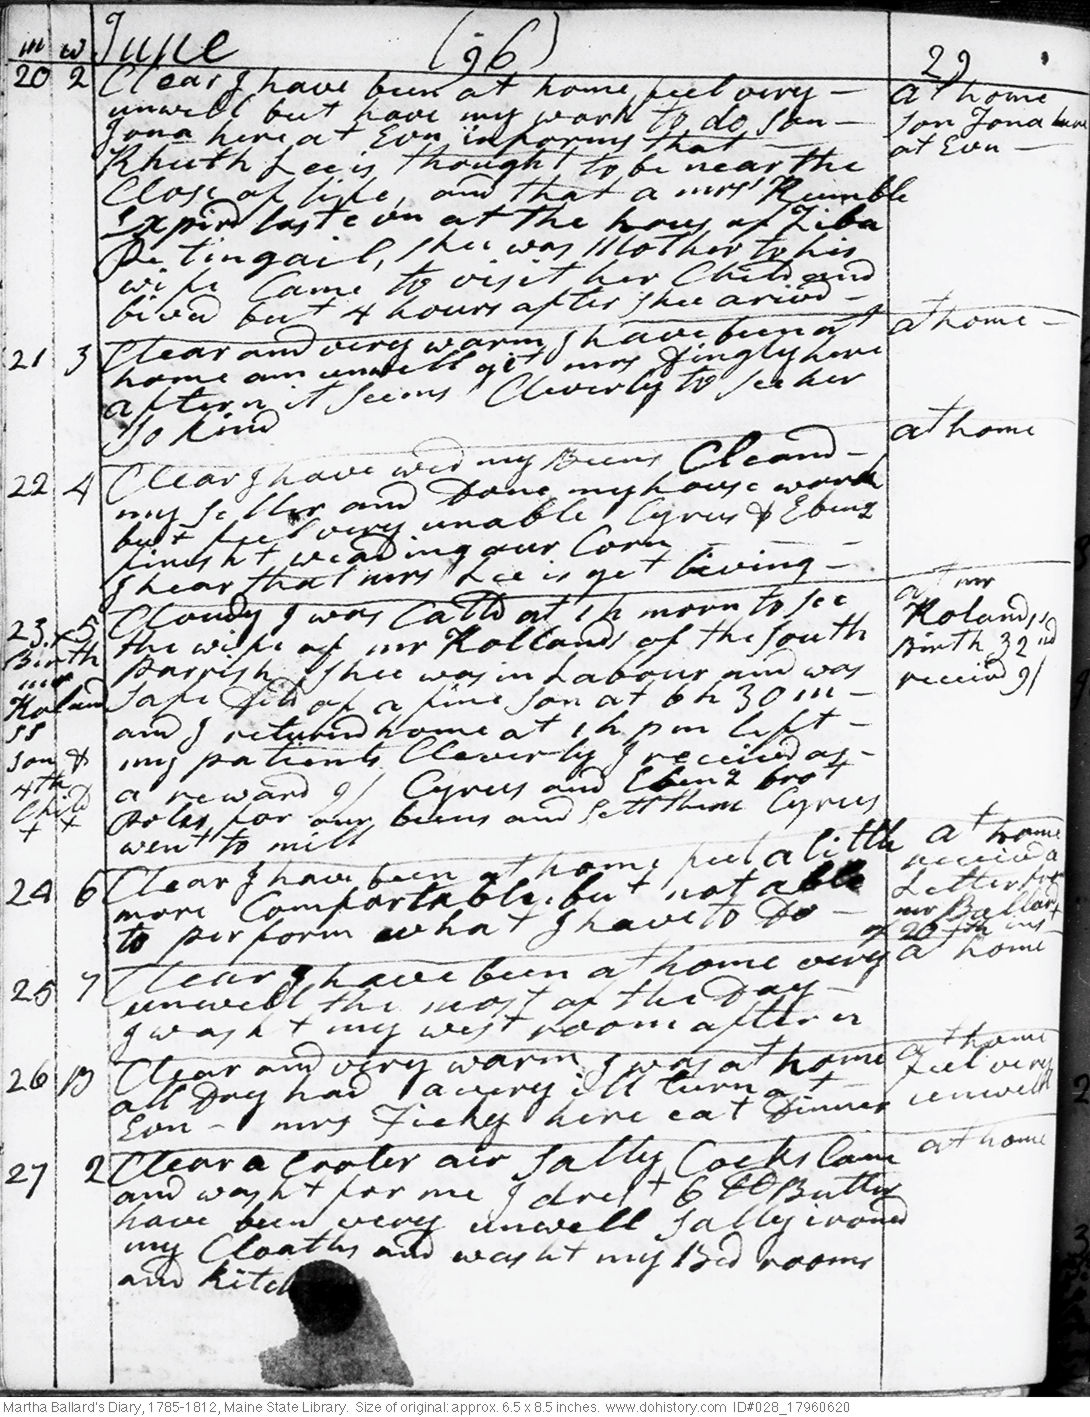 m w June (96) 29
20 2 Clear I have been at home, feel very — at home
unwell but have my work to do Son — son Jona here
Jona here at Evn informs that — at Evn —
Rhuth Lee is thought to be near the
Close of life, and that a mrs Rumble
Expird last evn at the hous of Ziba
Petingail, shee was Mother to his
wife Came to visit her Child and
livd but 4 hours after shee arivd —
21 3 Clear and very warm I have been at at home —
home am unwell yet mrs Dingly here
aftern it seems Cleverly to see her
so kind
22 4 Clear I have wed my Beens Cleand — at home
my Seller and Done my house work
but feel very unable Cyrus & Ebenz
finisht weading our Corn
I hear that mrs Lee is yet living —
23 5 Cloudy I was Calld at 1 h morn to see at mr
Birth the wife of mr Rollands of the South Rolands
mr parrish, shee was in Labour and was Birth 32nd
Roland safe Dld of a fine son at 6 h 30 m — receivd 9/
ss and I returnd home at 1 h pm left —
son & my patient Cleverly I received as —
4th a reward 9/ Cyrus and Ebenz brot
Child poles for our beens and sett them Cyrus
x x went to mill
24 6 Clear I have been at home, feel a little at home
more Comfortable but not able received a
to perform what I have to Do — Letter from
mr Ballard
of 20th ins
25 7 Clear I have been at home very at home
unwell the most of the Day —
I washt my west room aftern
26 B Clear and very warm I was at home at home
all Day had a very ill turn at — feel very
Evn — mrs Ficky here eat Dinner unwell
27 2 Clear a Cooler air Sally Cocks Came at home
and washt for me I drest 6 lb Butter
have been very unwell Sally irond
my Cloaths and washt my Bed rooms
and Kitch
Martha Ballard's Diary, 1785-1812, Maine State Library. Size of original: approx. 6.5 x 8.5 inches. www.dohistory.com ID#028_17960620